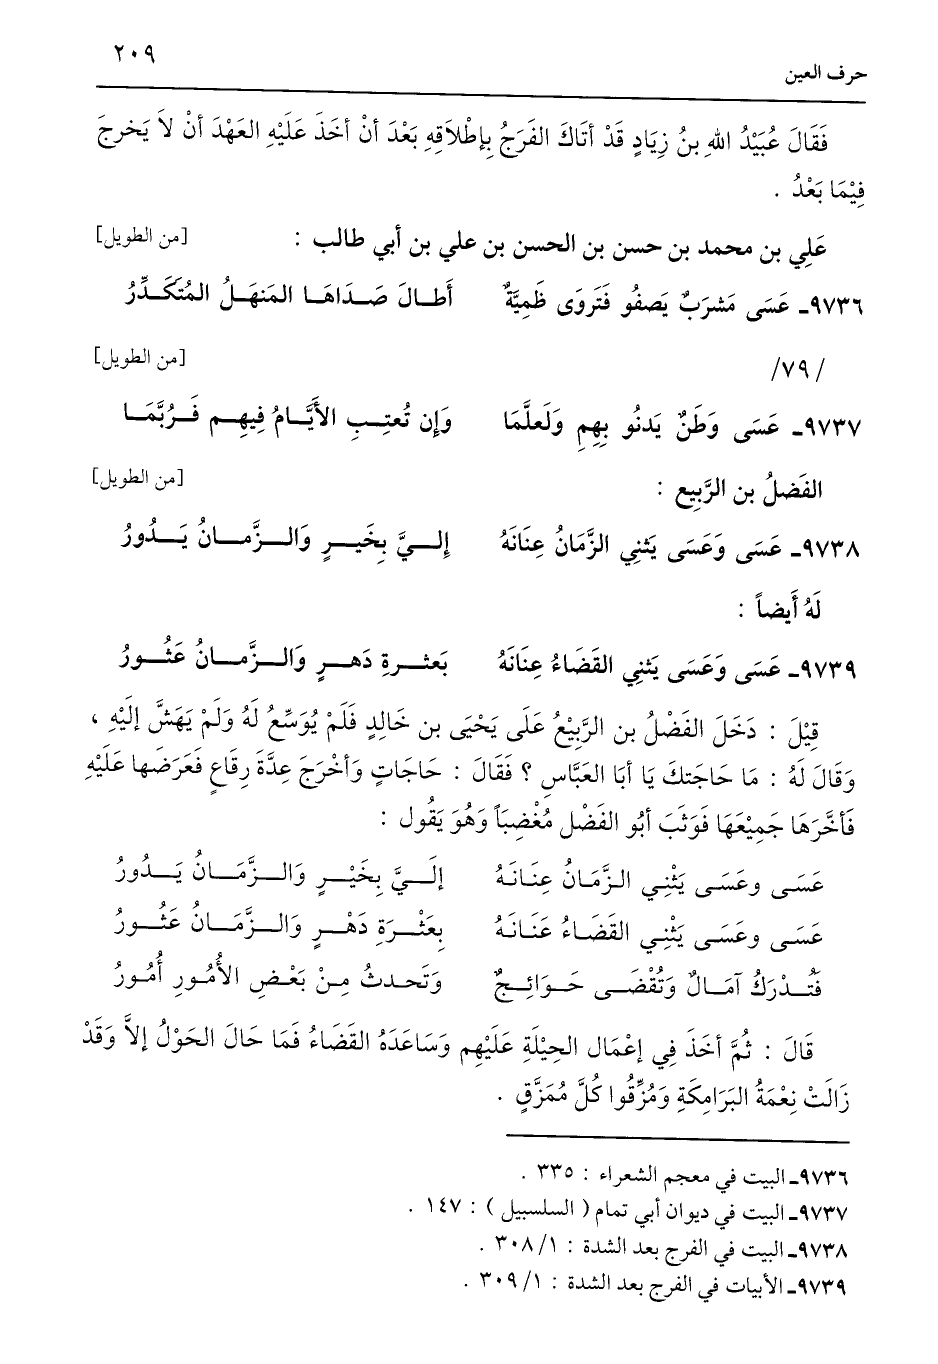 حرف العين ٢٠٩
فَقَالَ عُبَيْدُ اللهِ بنُ زِيَادٍ قَدْ أتَاكَ الفَرَجُ بِإطْلَاقِهِ بَعْدَ أنْ أخَذَ عَلَيْهِ العَهْدَ أنْ لاَ يَخرجَ
فِيْمَا بَعْدُ .
عَلِي بن محمد بن حسن بن الحسن بن علي بن أبي طالب : [من الطويل]
٩٧٣٦ـ عَسَى مَشرَبٌ يَصفُو فَتَروَى ظَمِيَّةٌ أَطـالَ صَـدَاهَـا المَنهَـلُ المُتَكَـدِّرُ
/٧٩/ [من الطويل]
٩٧٣٧ـ عَسَى وَطَنٌ يَدنُو بِهِمِ وَلَعلَّمَا وَإِن تُعتِـبِ الأَيَّـامُ فِيهِـم فَـرُبَّمَـا
الفَضلُ بن الرَّبِيع : [من الطويل]
٩٧٣٨ـ عَسَى وَعَسَى يَثنِي الزَّمَانُ عِنَانَهُ إِلـيَّ بِخَيـرٍ وَالـزَّمـانُ يَـدُورُ
لَهُ أَيضاً :
٩٧٣٩ـ عَسَى وَعَسَى يَثنِي القَضَاءُ عِنَانَهُ بَعثـرةِ دَهـرٍ وَالـزَّمـانُ عَثُـورُ
قِيْلَ : دَخَلَ الفَضْلُ بن الرَّبِيْعُ عَلَى يَحْيَى بن خَالِدٍ فَلَمْ يُوَسِّعُ لَهُ وَلَمْ يَهَشَّ إلَيْهِ ،
وَقَالَ لَهُ : مَا حَاجَتكَ يَا أبَا العَبَّاسِ ؟ فَقَالَ : حَاجَاتٍ وَأخْرَجَ عِدَّةَ رِقَاعٍ فَعَرَضَها عَلَيْهِ
فَأخَّرَهَا جَمِيْعَهَا فَوَثَبَ أبُو الفَضْل مُغْضِبَاً وَهُوَ يَقُول :
عَسَـى وعَسَـى يَثْنِـي الـزَّمَـانُ عِنَانَـهُ إلَـيَّ بِخَيْـرٍ وَالـزَّمَـانُ يَـدُورُ
عَسَـى وعَسَـى يَثْنِـي القَضَـاءُ عَنَانَـهُ بِعَثْـرَةِ دَهْـرٍ وَالـزَّمَـانُ عَثُـورُ
فَتُـدْرَكُ آمَـالٌ وَتُقْضَـى حَـوَائِـجٌ وَتَحدثُ مِـنْ بَعْـضِ الأُمُـورِ أُمُـورُ
قَالَ : ثُمَّ أخَذَ فِي إعْمَال الحِيْلَةِ عَلَيْهِم وَسَاعَدَهُ القَضَاءُ فَمَا حَالَ الحَوْلُ إلاَّ وَقَدْ
زَالَتْ نِعْمَةُ البَرَامِكَةِ وَمُزِّقُوا كُلَّ مُمَزَّقٍ .
٩٧٣٦ـ البيت في معجم الشعراء : ٣٣٥ .
٩٧٣٧ـ البيت في ديوان أبي تمام ( السلسبيل ) : ١٤٧ .
٩٧٣٨ـ البيت في الفرج بعد الشدة : ٣٠٨/١ .
٩٧٣٩ـ الأبيات في الفرج بعد الشدة : ٣٠٩/١ .